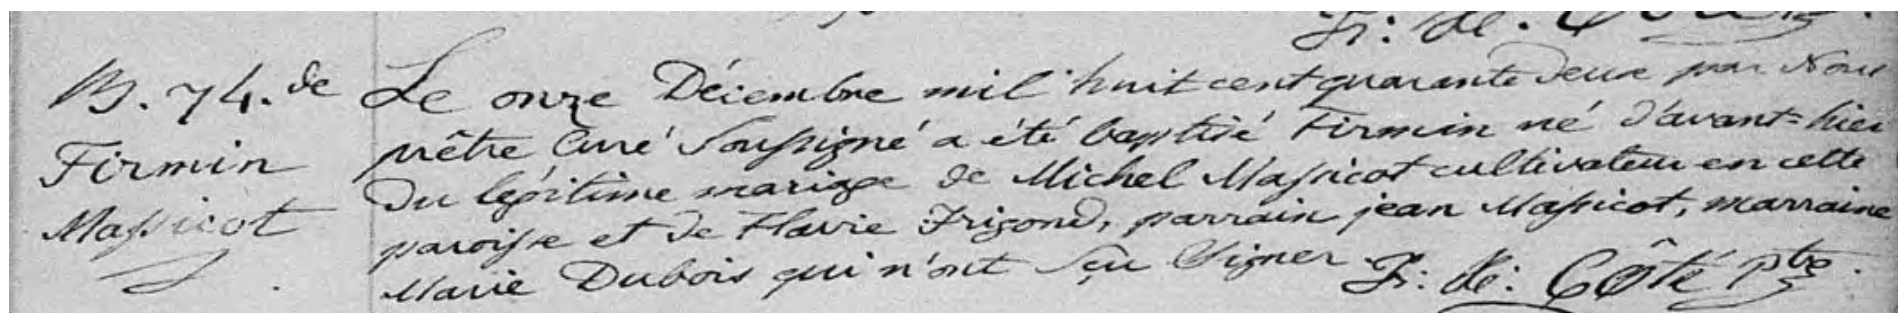 B. 74. de
Firmin
Massicot
Le onze Décembre mil huit cent quarante deux par Nous
prêtre Curé Soussigné a été baptisé Firmin né d'avant=hier
Du légitime mariage de Michel Massicot cultivateur en cette
paroisse et de Flavie Frigond, parrain jean Massicot, marraine
Marie Dubois qui n'ont sçu Signer.
Côté Ptre.